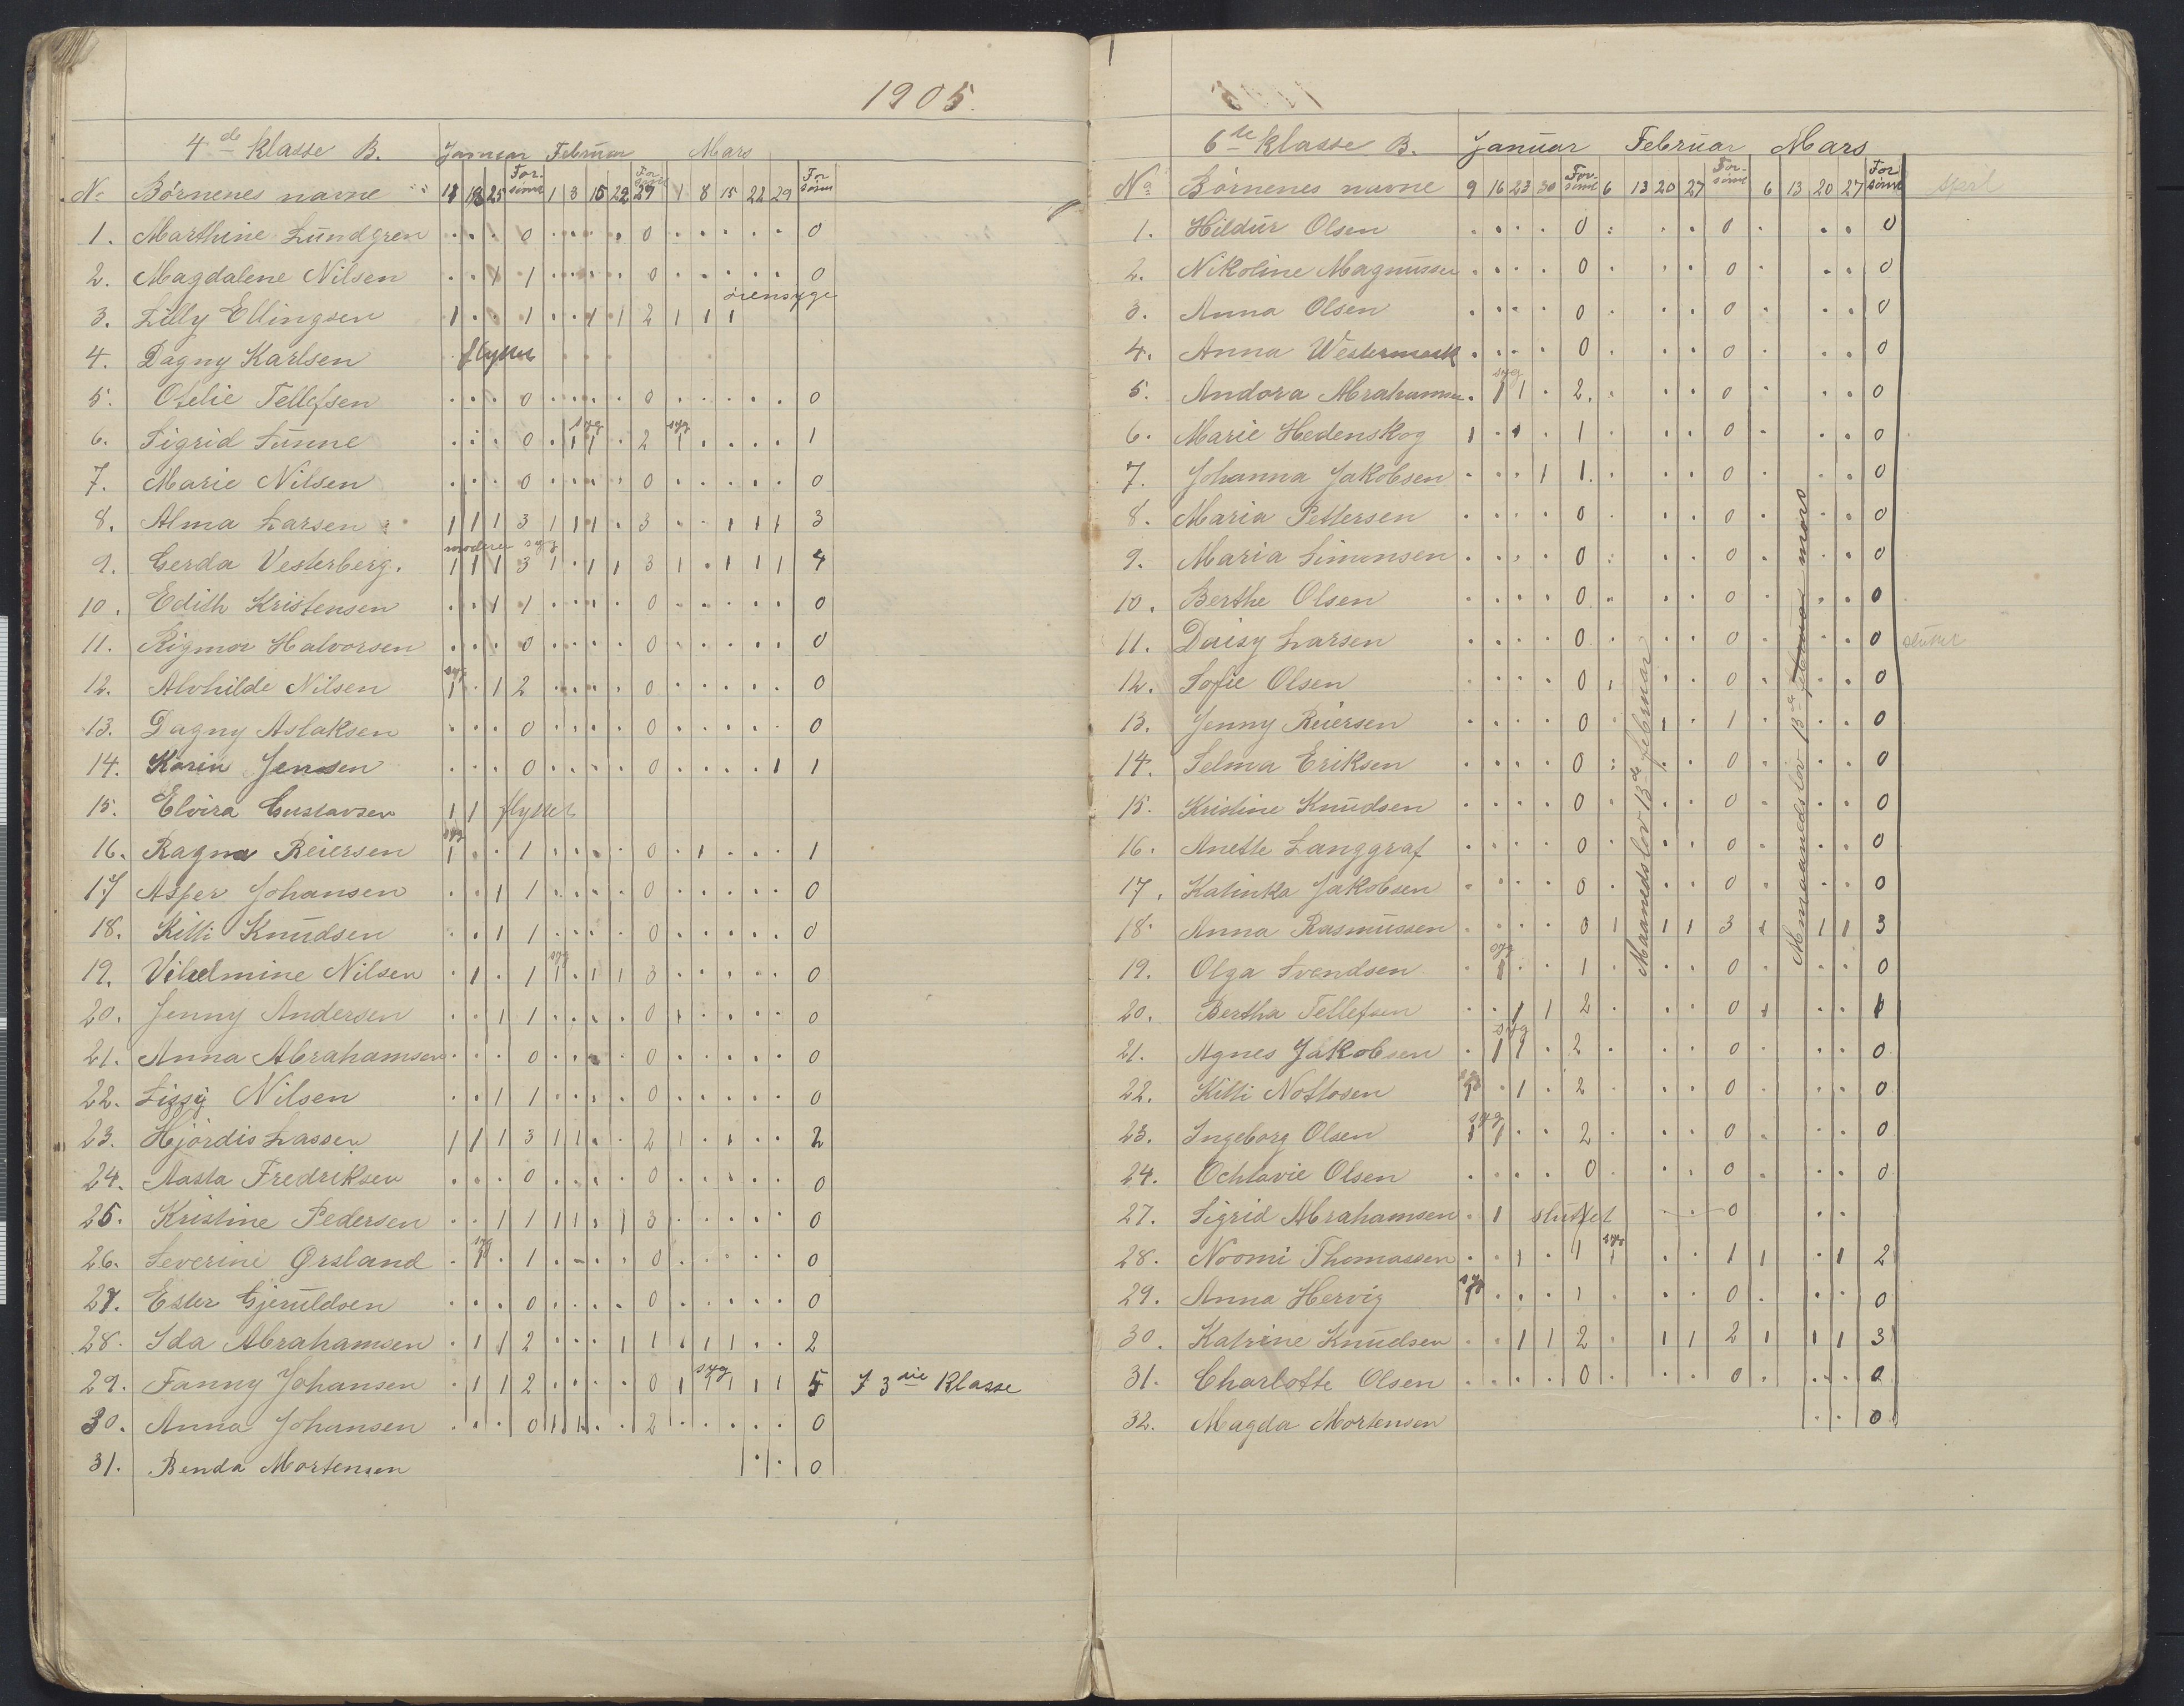 1905.
4de Klasse B. Januar Februar Mars
No Börnenes navne 11 18 25 Forsömt 1 8 15 22 Forsömt 1 8 15 22 29 Forsömt
1. Marthine Lundgren . . . 0 . . . . 0 . . . . . 0
2. Magdalene Nilsen . . 1 1 . . . . 0 . . . . . 0
öiensyge
3. Lilly Ellingsen 1 . . 1 . . 1 1 2 1 1 1
4. Dagny Karlsen . flyttet
5. Ofelie Tellefsen . . . 0 . . . . 0 . . . . . 0
syg syg
6. Sigrid Sunne . . . 0 . 1 1 . 2 1 . . . . 1
7. Marie Nilsen . . . 0 . . . . 0 . . . . . 0
8. Alma Larsen 1 1 1 3 1 1 1 . 3 . . 1 1 1 3
moderen syg
9. Gerda Vesterberg. 1 1 1 3 1 . 1 1 3 1 . 1 1 1 4
10. Edith Kristensen . . 1 1 . . . . 0 . . . . . 0
11. Rigmor Halvorsen . . . 0 . . . . 0 . . . . . 0
syg
12. Alvhilde Nilsen 1 . 1 2 . . . . 0 . . . . . 0
13. Dagny Aslaksen . . . 0 . . . . 0 . . . . . 0
14. Karin Jensen . . . 0 . . . . 0 . . . . 1 1
15. Elvira Gustavsen 1 1 flyttet
syg
16. Ragna Reiersen 1 . . 1 . . . . 0 . 1 . . . 1
17 Asfer Johansen . . 1 1 . . . . 0 . . . . . 0
18. Kitti Knudsen . . 1 1 . . . . 0 . . . . . 0
syg
19. Vilhelmine Nilsen . 1 . 1 1 . 1 1 3 . . . . . 0
20. Jenny Andersen . . 1 1 . . . . 0 1 . . . . 0
21. Anna Abrahamsen . . . 0 . . . . 0 . . . . . 0
22. Lissy Nilsen . . 1 1 . . . . 0 . . . . . 0
23. Hjördis Lassen 1 1 1 3 1 1 . . 2 1 . 1 . . 2
24. Aasta Fredriksen . . . 0 . . . . 0 . . . . . 0
25. Kristine Pedersen . . 1 1 1 1 . 1 3 . . . . . 0
syg
26. Severine Ørsland . 1 . 1 . . . . 0 . . . . . 0
27. Ester Gjeruldsen . . . 0 . . . . 0 . . . . . 0
28. Ida Abrahamsen . 1 1 2 . . . 1 1 . 1 1 . . 2
syg
29. Fanny Johansen . 1 1 2 . . . . 0 1 1 1 1 1 5 I 3die Klasse
30. Anna Johansen . . . 0 1 1 . . 2 . . . . . 0
31. Benda Mortensen . . 0
6te Klasse B. Januar Februar Mars
No Börnenes navne 9 16 23 30 Forsömt 6 13 20 27 Forsömt 6 13 20 27 Forsömt April
1. Hildur Olsen . . . . 0 . . . 0 . . . 0
2. Nikoline Magnussen . . . . 0 . . . 0 . . . 0
3. Anna Olsen . . . . 0 . . . 0 . . . 0
4. Anna Westermark . . . . 0 . . . 0 . . . 0
syg
5. Andora Abrahamsen . 1 1 . 2 . . . 0 . . 0
6. Marie Hedenskog 1 . . . 1 . . . 0 . . . 0
7. Johanna Jakobsen . . . 1 1 . . . 0 . . . 0
8. Maria Pettersen . . . . 0 . . . 0 . . . 0
9. Maria Simensen . . . . 0 . . . 0 . . . 0
10. Berthe Olsen . . . . 0 . . . 0 . . . 0
11. Daisy Larsen . . . . 0 . . . 0 . . . 0 sluttet
12. Sofie Olsen . . . . 0 . . . 0 . . . 0
13. Jenny Reiersen . . . . 0 . 1 . 1 . . . 0
14. Selma Eriksen . . . . 0 . . . 0 . . . 0
15. Kristine Knudsen . . . . 0 . . . 0 . . . 0
16. Anette Langgraf . . . . 0 . . . 0 . . . 0
17. Katinka Jakobsen . . . . 0 . . . 0 . . . 0
18. Anna Rasmussen . . . . 0 1 1 1 3 1 1 1 3
syg
19. Olga Svendsen . 1 . . 1 . . . 0 . . . 0
20. Bertha Tellefsen . . 1 1 2 . . . 0 1 . . 1
syg
21. Agnes Jakobsen . 1 1 . 2 . . . 0 . . . 0
syg
22. Kitti Nottosen 1 . 1 . 2 . . . 0 . . . 0
syg
23. Ingeborg Olsen 1 1 . . 2 . . . 0 . . . 0
24. Ochtavie Olsen . . . . 0 . . . 0 . . . 0
27. Sigrid Abrahamsen . 1 sluttet . . 0 . .
syg
28. Noomi Thomassen . . 1 . 1 1 . . 1 1 . 1 2
syg
29. Anna Hervig 1 . . . 1 . . . 0 . . . 0
30. Katrine Knudsen . . 1 1 2 . 1 1 2 1 1 1 3
31. Charlotte Olsen . . . . 0 . . . 0 . . . 0
32. Magda Mortensen . . 0
Maanedslov 13de februar
Maanedslov 13de februar mars